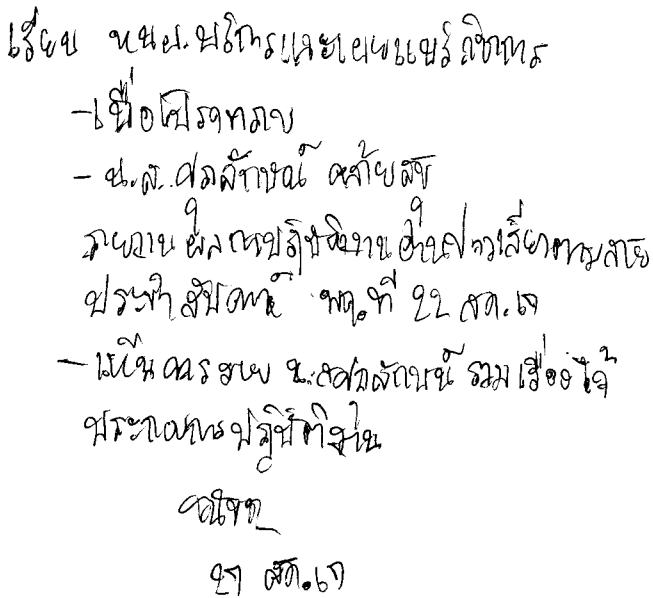 เรียน หน.บริการและเผยแพร่วิชาการ
-เพื่อโปรดทราบ
- น.ส. ศุภลักษณ์ คล้ายสุข
รายงานผลการปฏิบัติงานอ่านข่าวเสียงตามสาย
ประจำสัปดาห์ พฤ.ที่ 22 สค.
-เห็นควรมอบ น.ส.ศุภลักษณ์ รวมเรื่องไว้
ประกอบการปฏิบัติงาน
สค.